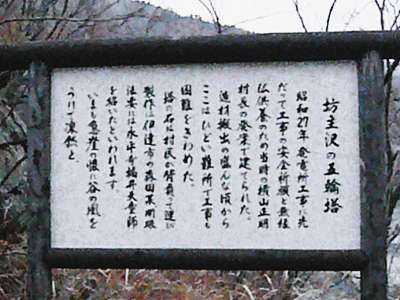 坊主沢の五輪塔
昭和27年 発電所工事に先
だって工事の安全祈願と無縁
仏供養のため当時の横山正明
村長の発案で建てられた。
造材搬出の盛んな頃から
ここはひどい難所で工事も
困難をきわめた。
塔の石は村民が背負って運び
製作は伊達市の
法要には永平寺
を招いたといわれます。
いまも懸崖の懐に谷の風を
うけて凛然と。